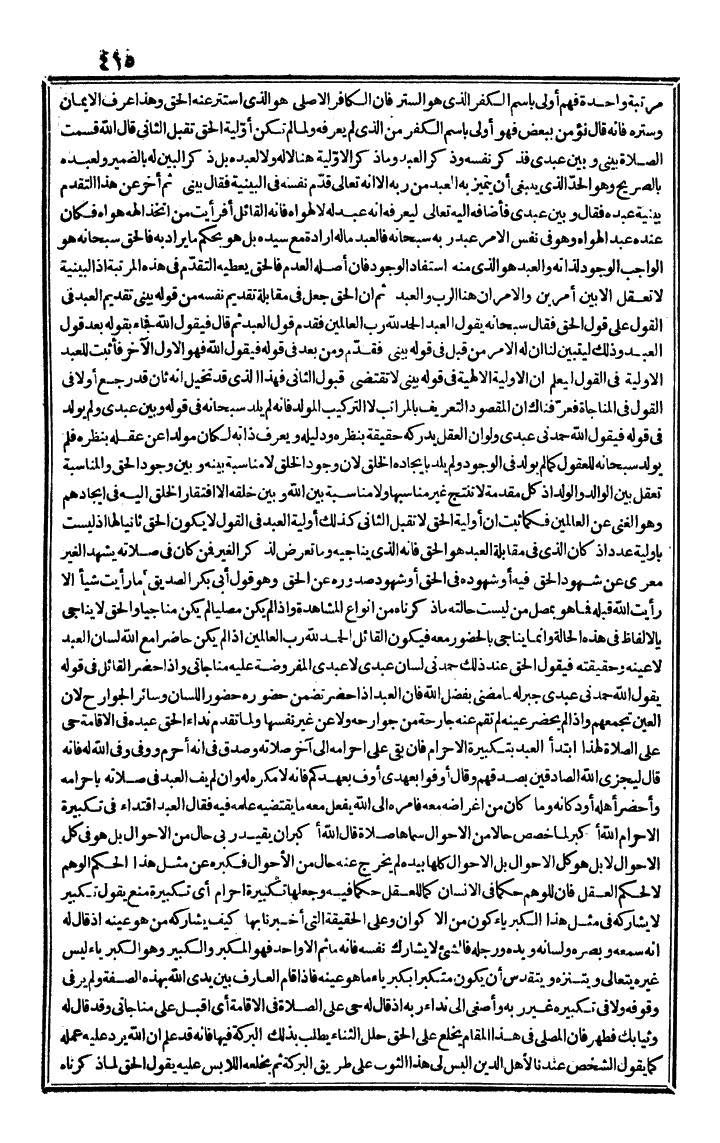 ٤١٥
مرتبة واحدة فهم أولى باسم الكفر الذى هو الستر فان الكافر الاصلى هو الذى استتر عنه الحق وهذا عرف الايمان
وستره فانه قال نؤمن ببعض فهو أولى باسم الكفر من الذى لم يعرفه ولما لم تكن أولية الحق تقبل الثانى قال الله قسمت
الصلاة بينى وبين عبدى فذكر نفسه وذكر العبد وما ذكر الاولية هنا لا له ولا لعبده بل ذكر البين له بالضمير ولعبده
بالصريح وهو الحد الذى ينبغى أن يتميز به العبد من ربه الا انه تعالى قدّم نفسه فى البينية فقال بينى ثم أخر عن هذا التقدم
بينية عبده فقال وبين عبدى فأضافه اليه تعالى ليعرفه انه عبد له لا لهواه فانه القائل أفرأيت من اتخذ الهه هواه فكان
عنده عبد الهواه وهو فى نفس الامر عبد ربه سبحانه فالعبد ماله ارادة مع سيده بل هو بحكم ما يراد به فالحق سبحانه هو
الواجب الوجود لذاته والعبد هو الذى منه استفاد الوجود فان أصله العدم فالحق يعطيه التقدّم فى هذه المرتبة اذ البينية
لا تعقل الا بين أمرين والامران هنا الرب والعبد ثم ان الحق جعل فى مقابلة تقديم نفسه من قوله بينى تقديم العبد فى
القول على قول الحق فقال سبحانه يقول العبد الحمد لله رب العالمين فقدم قول العبد ثم قال فيقول الله فجاء بقوله بعد قول
العبد وذلك ليتبين لنا ان له الامر من قبل فى قوله بينى فقدّم ومن بعد فى قوله فيقول الله فهو الاول الآخر فأثبت للعبد
الاولية فى القول ليعلم ان الاولية الالهية فى قوله بينى لا تقتضى قبول الثانى فهذا الذى قد تخيل انه ثان قد رجع أولا فى
القول فى المناجاة فعرّفناك ان المقصود التعريف بالمراتب لا التركيب المولد فانه لم يلد سبحانه فى قوله وبين عبدى ولم يولد
فى قوله فيقول الله حمدنى عبدى ولو ان العقل يدركه حقيقة بنظره ودليله ويعرف ذاته لكان مولدا عن عقله بنظره فلم
يولد سبحانه للعقول كما لم يولد فى الوجود ولم يلد بايجاده الخلق لان وجود الخلق لا مناسبة بينه وبين وجود الحق والمناسبة
تعقل بين الوالد والولد اذ كل مقدمة لا تنتج غير مناسبها ولا مناسبة بين الله وبين خلقه الا افتقار الخلق اليه فى ايجادهم
وهو الغنى عن العالمين فكما ثبت ان أولية الحق لا تقبل الثانى كذلك أولية العبد فى القول لا يكون الحق ثانيا لها اذ ليست
باولية عدد اذ كان الذى فى مقابلة العبد هو الحق فانه الذى يناجيه وما تعرض لذكر الغير فمن كان فى صلاته يشهد الغير
معرى عن شهود الحق فيه أو شهوده فى الحق أو شهود صدوره عن الحق وهو قول أبى بكر الصديق ما رأيت شيأ الا
رأيت الله قبله فما هو بمصل من ليست حالته ما ذكرناه من انواع المشاهدة واذا لم يكن مصليا لم يكن مناجيا والحق لا يناجى
بالالفاظ فى هذه الحالة وانما يناجى بالحضور معه فيكون القائل الحمد لله رب العالمين اذا لم يكن حاضرا مع الله لسان العبد
لا عينه وحقيقته فيقول الحق عند ذلك حمدنى لسان عبدى لا عبدى المفروضة عليه مناجاتى واذا حضر القائل فى قوله
يقول الله حمدنى عبدى جبر له ما مضى بفضل الله فان العبد اذا حضر تضمن حضوره حضور اللسان وسائر الجوارح لان
العين تجمعهم واذا لم يحضر عينه لم تقم عنه جارحة من جوارحه ولا عن غير نفسها ولما تقدم نداء الحق عبده فى الاقامة حى
على الصلاة لهذا ابتدأ العبد بتكبيرة الاحرام فان بقى على احرامه الى آخر صلاته وصدق فى انه أحرم ووفى وفى الله له فانه
قال ليجزى الله الصادقين بصدقهم وقال أوفوا بعهدى أوف بعهدكم فانه لا مكره له وان لم يف العبد فى صلاته باحرامه
وأحضر أهله أو دكانه وما كان من اغراضه معه فامره الى الله يفعل معه ما يقتضيه علمه فيه فقال العبد اقتداء فى تكبيرة
الاحرام الله أكبر لما خصص حالا من الاحوال سماها صلاة قال الله أكبر ان يقيد ربى حال من الاحوال بل هو فى كل
الاحوال لا بل هو كل الاحوال بل الاحوال كلها بيده لم يخرج عنه حال من الأحوال فكبره عن مثل هذا الحكم الوهم
لا لحكم العقل فان للوهم حكما فى الانسان كما للعقل حكما فيه وجعلها تكبيرة احرام أى تكبيرة منع يقول تكبير
لا يشاركه فى مثل هذا الكبرياء كون من الاكوان وعلى الحقيقة التى أخبرنا بها كيف يشاركه من هو عينه اذ قال له
انه سمعه وبصره ولسانه ويده ورجله فالشئ لا يشارك نفسه فانه ما ثم الا واحد فهو المكبر والكبير وهو الكبرياء ليس
غيره يتعالى ويتنزه ويتقدس أن يكون متكبرا بكبرياء ما هو عينه فاذا قام العارف بين يدى الله بهذه الصفة ولم ير فى
وقوفه ولا فى تكبيره غير ربه وأصغى الى نداء ربه اذ قال له حى على الصلاة فى الاقامة أى اقبل على مناجاتى وقد قال له
وثيابك فطهر فان المصلى فى هذا المقام يخلع على الحق حلل الثناء يطلب بذلك البركة فيها فانه قد علم ان الله يرد عليه عمله
كما يقول الشخص عندنا لأهل الدين البس لى هذا الثوب على طريق البركة ثم يخلعه اللابس عليه يقول الحق لما ذكرناه